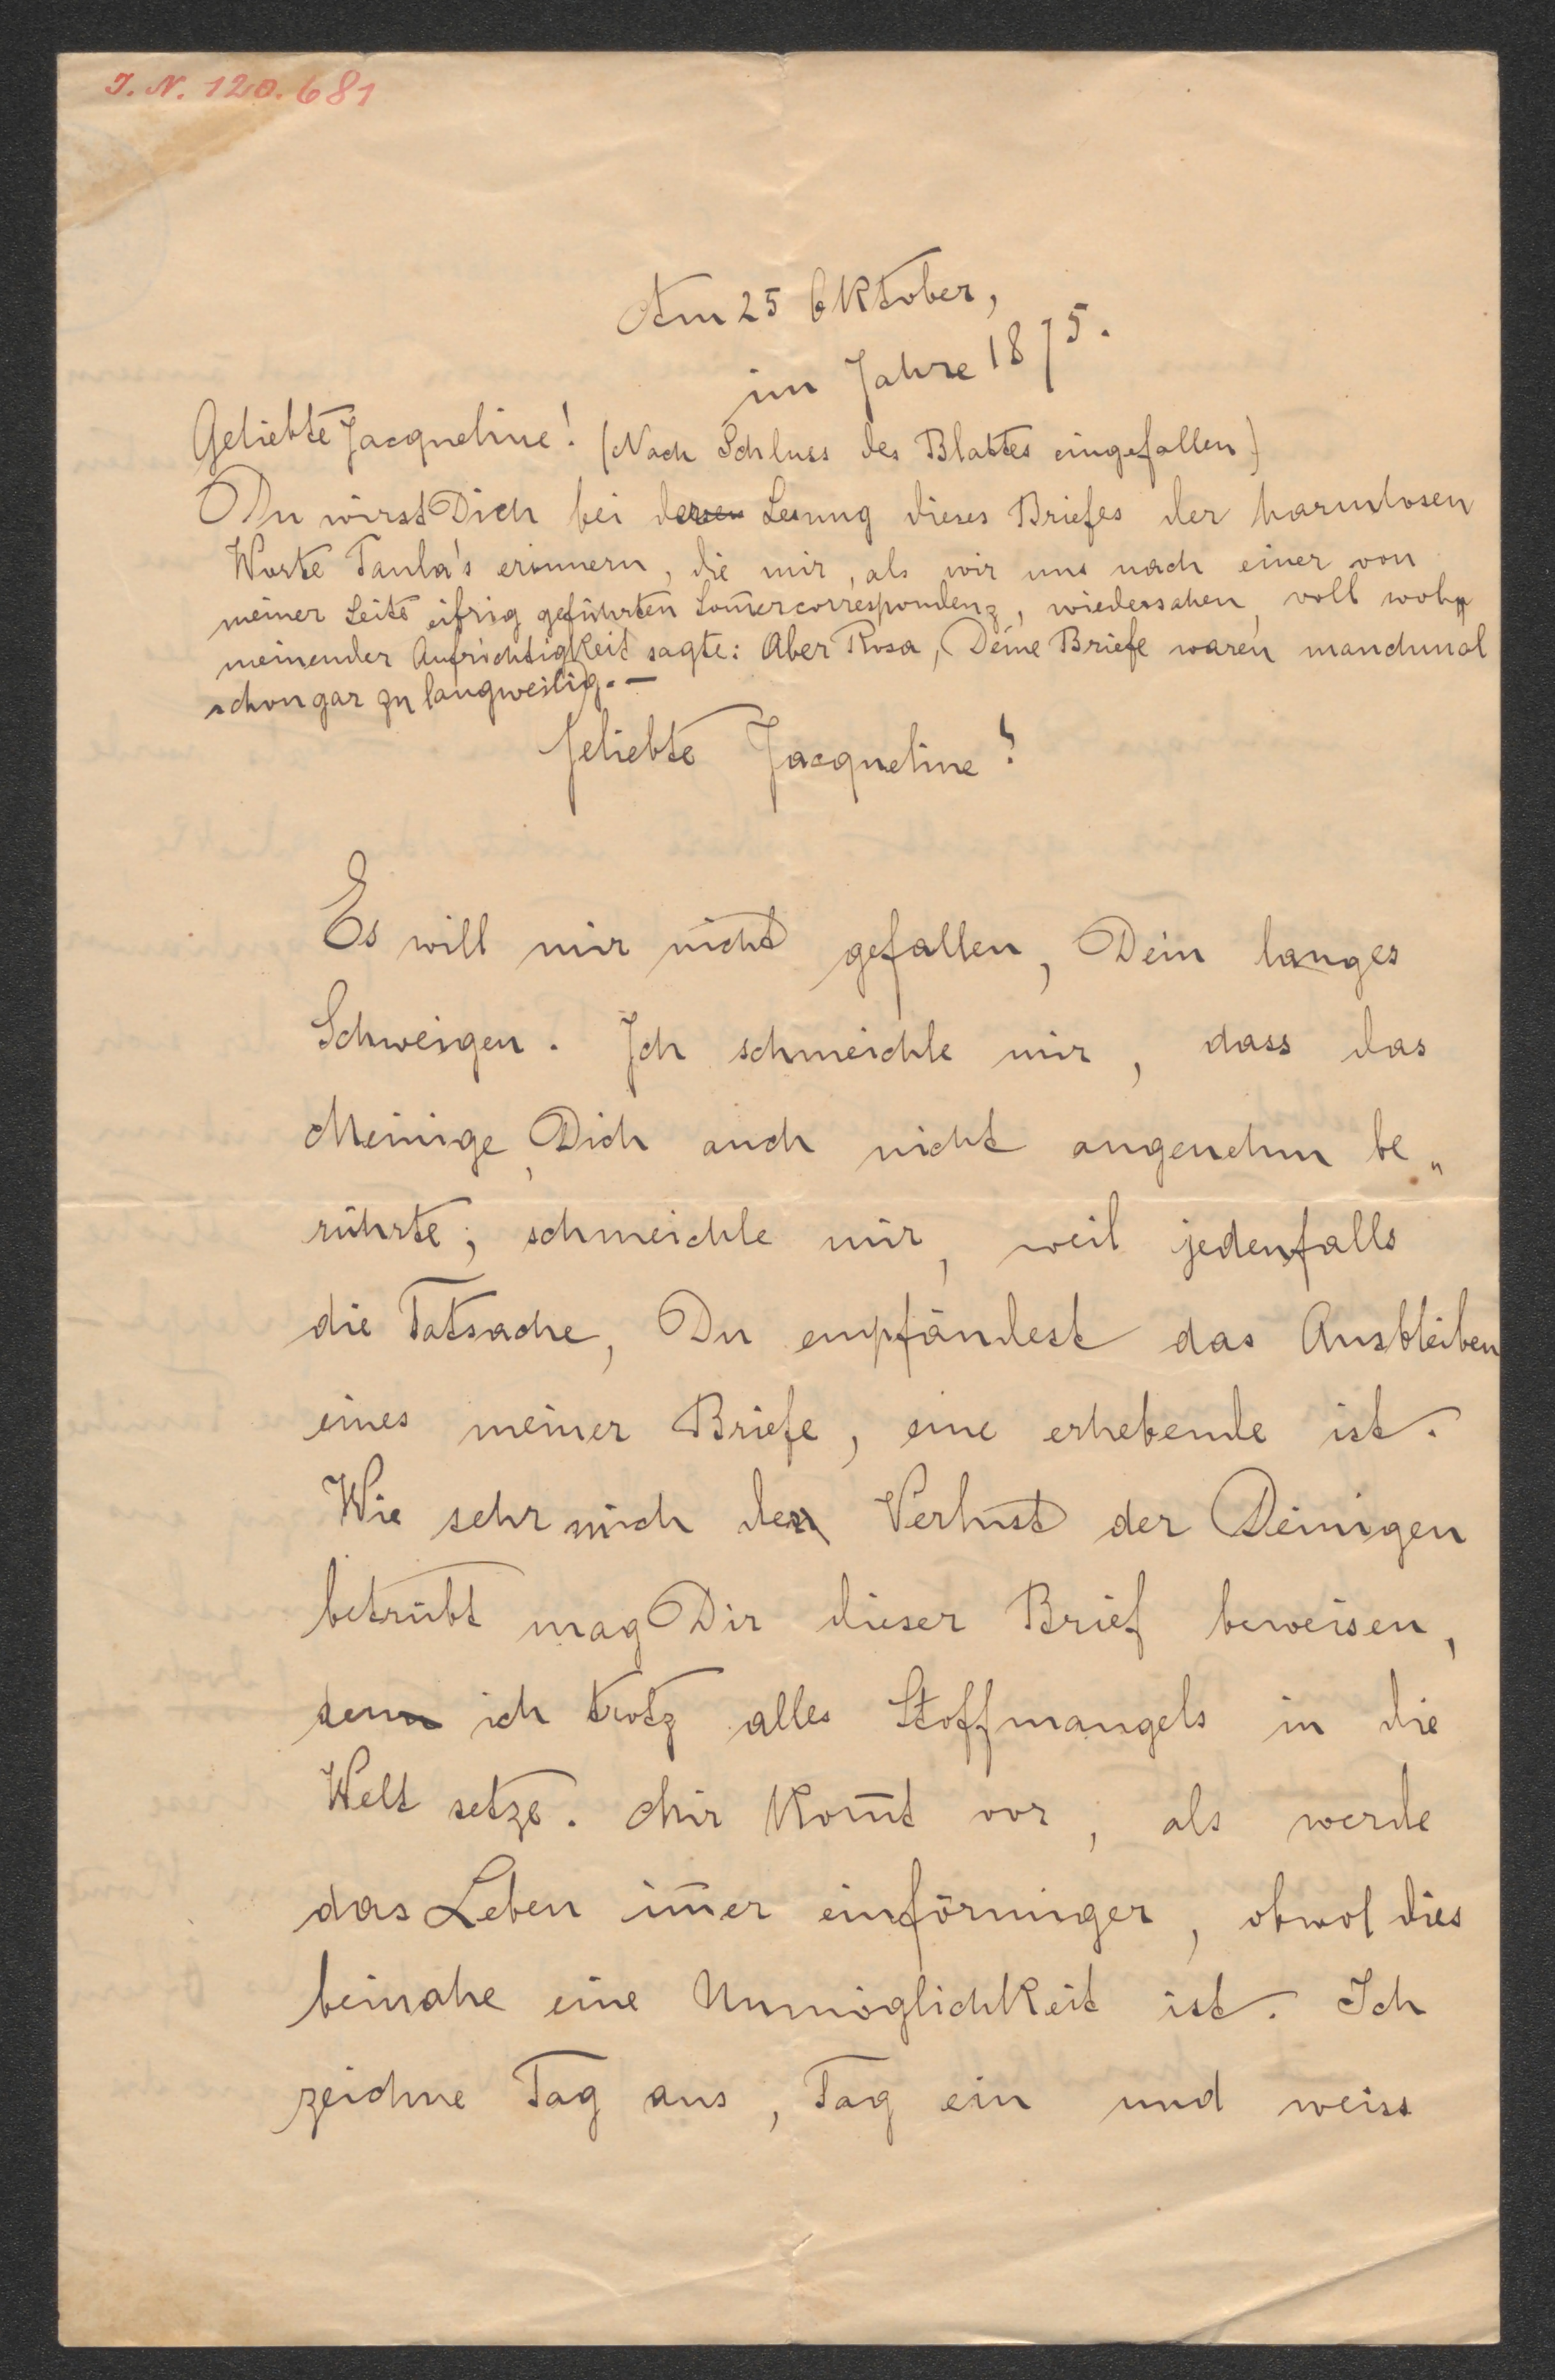 J. N. 120.681
Am 25 Oktober,
im Jahre 1875.
Geliebte Jacqueline! (Nach Schluss des Blattes eingefallen)
Du wirst Dich bei Lesung dieses Briefes der harmlosen
Worte Paula's erinnern, die mir, als wir uns nach einer von
meiner Seite eifrig geführten Som̅ercorrespondenz, wiedersahen, voll wohl„
meinender Aufrichtigkeit sagte: Aber Rosa, Deine Briefe waren manchmal
schon gar zu langweilig. —
Geliebte Jacqueline!
Es will mir nicht gefallen, Dein langes
Schweigen. Ich schmeichle mir, dass das
Meinige, Dich auch nicht angenehm be„
rührte; schmeichle mir, weil jedenfalls
die Tatsache, Du empfändest das Ausbleiben
eines meiner Briefe, eine erhebende ist.
Wie sehr mich der Verlust der Deinigen
betrübt mag Dir dieser Brief beweisen,
den ich trotz alles Stoffmangels in die
Welt setze. Mir kom̅t vor, als werde
das Leben im̅er einförmiger, obwol dies
beinahe eine Unmöglichkeit ist. Ich
zeichne Tag aus, Tag ein und weiss